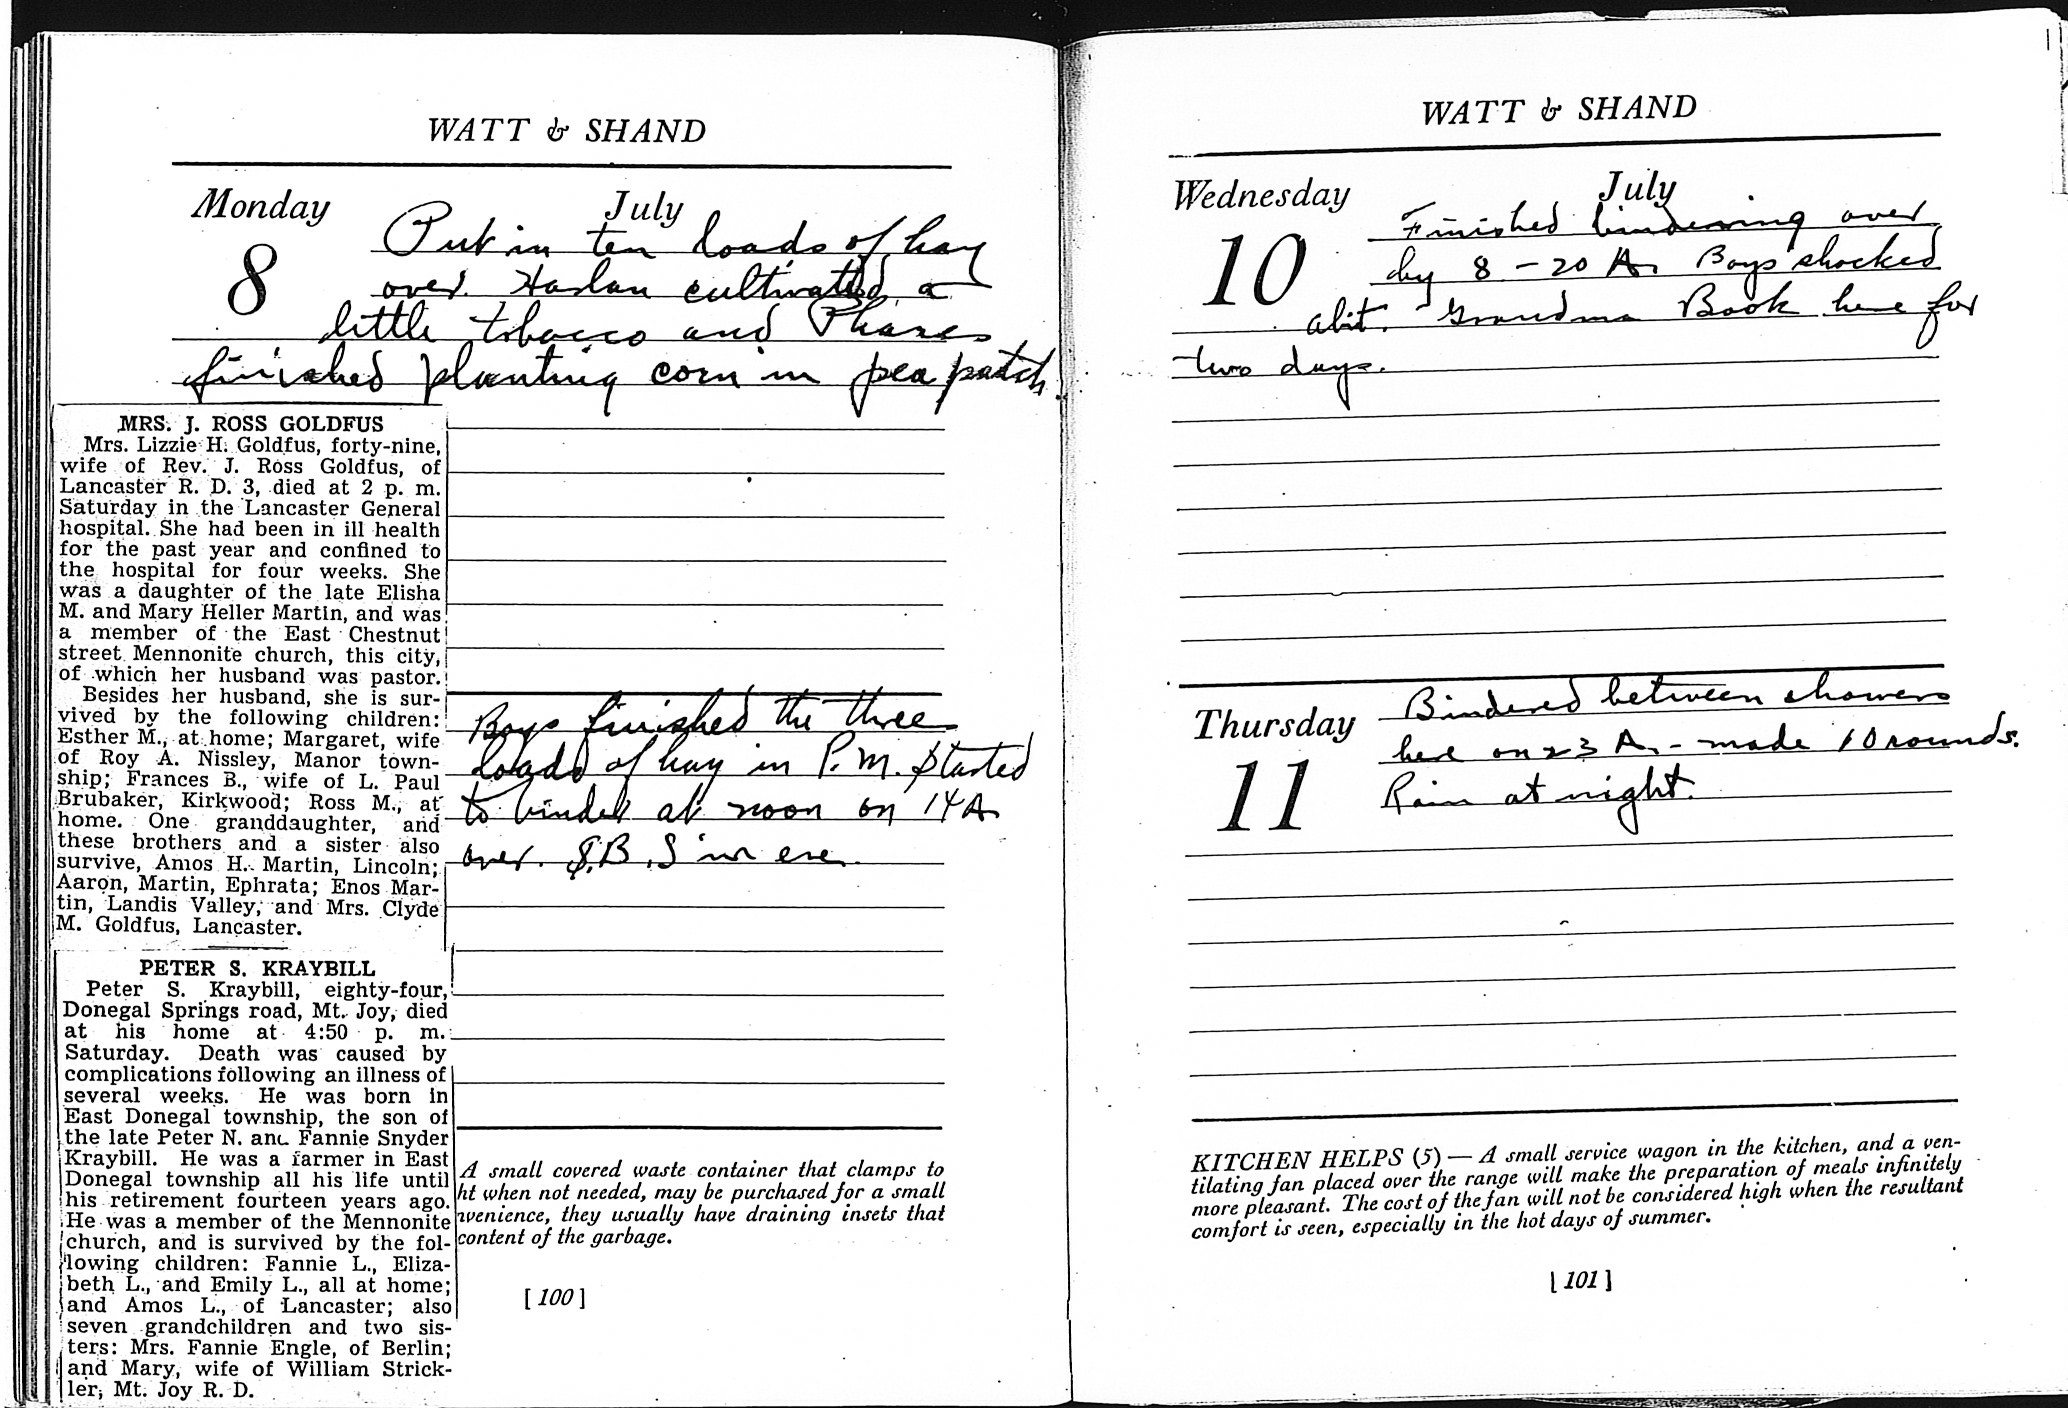 WATT & SHAND
Monday July
8
Put in ten loads of hay
over. Harlan cultivated a
little tobacco and Phares
finished planting corn in pea patch.
MRS. J. ROSS GOLDFUS
Mrs. Lizzie H. Goldfus, forty-nine,
wife of Rev. J. Ross Goldfus, of
Lancaster R. D. 3, died at 2 p. m.
Saturday in the Lancaster General
hospital. She had been in ill health
for the past year and confined to
the hospital for four weeks. She
was a daughter of the late Elisha
M. and Mary Heller Martin, and was
a member of the East Chestnut
street Mennonite church, this city,
of which her husband was pastor.
Besides her husband, she is sur-
vived by the following children:
Esther M., at home; Margaret, wife
of Roy A. Nissley, Manor town-
ship; Frances B., wife of L. Paul
Brubaker, Kirkwood; Ross M., at
home. One granddaughter, and
these brothers and a sister also
survive, Amos H. Martin, Lincoln;
Aaron, Martin, Ephrata; Enos Mar-
tin, Landis Valley, and Mrs. Clyde
M. Goldfus, Lancaster.
PETER S. KRAYBILL
Peter S. Kraybill, eighty-four,
Donegal Springs road, Mt. Joy, died
at his home at 4:50 p. m.
Saturday. Death was caused by
complications following an illness of
several weeks. He was born in
East Donegal township, the son of
the late Peter N. and Fannie Snyder
Kraybill. He was a farmer in East
Donegal township all his life until
his retirement fourteen years ago.
He was a member of the Mennonite
church, and is survived by the fol-
lowing children: Fannie L., Eliza-
beth L., and Emily L., all at home;
and Amos L., of Lancaster; also
seven grandchildren and two sis-
ters: Mrs. Fannie Engle, of Berlin;
and Mary, wife of William Strick-
ler, Mt. Joy R. D.
Boys finished the three
loads of hay in P.M. Started
to binder at noon on 14 A
over. S.B.S in eve.
A small covered waste container that clamps to
ht when not needed, may be purchased for a small
nvenience, they usually have draining insets that
content of the garbage.
[100]
WATT & SHAND
Wednesday July
10
Finished bindering over
by 8-20 A. Boys shocked
abit. Grandma Book here for
two days.
Thursday
11
Bindered between showers
here on 23 A. - made 10 rounds.
Rain at night.
KITCHEN HELPS (5) — A small service wagon in the kitchen, and a ven-
tilating fan placed over the range will make the preparation of meals infinitely
more pleasant. The cost of the fan will not be considered high when the resultant
comfort is seen, especially in the hot days of summer.
[101]